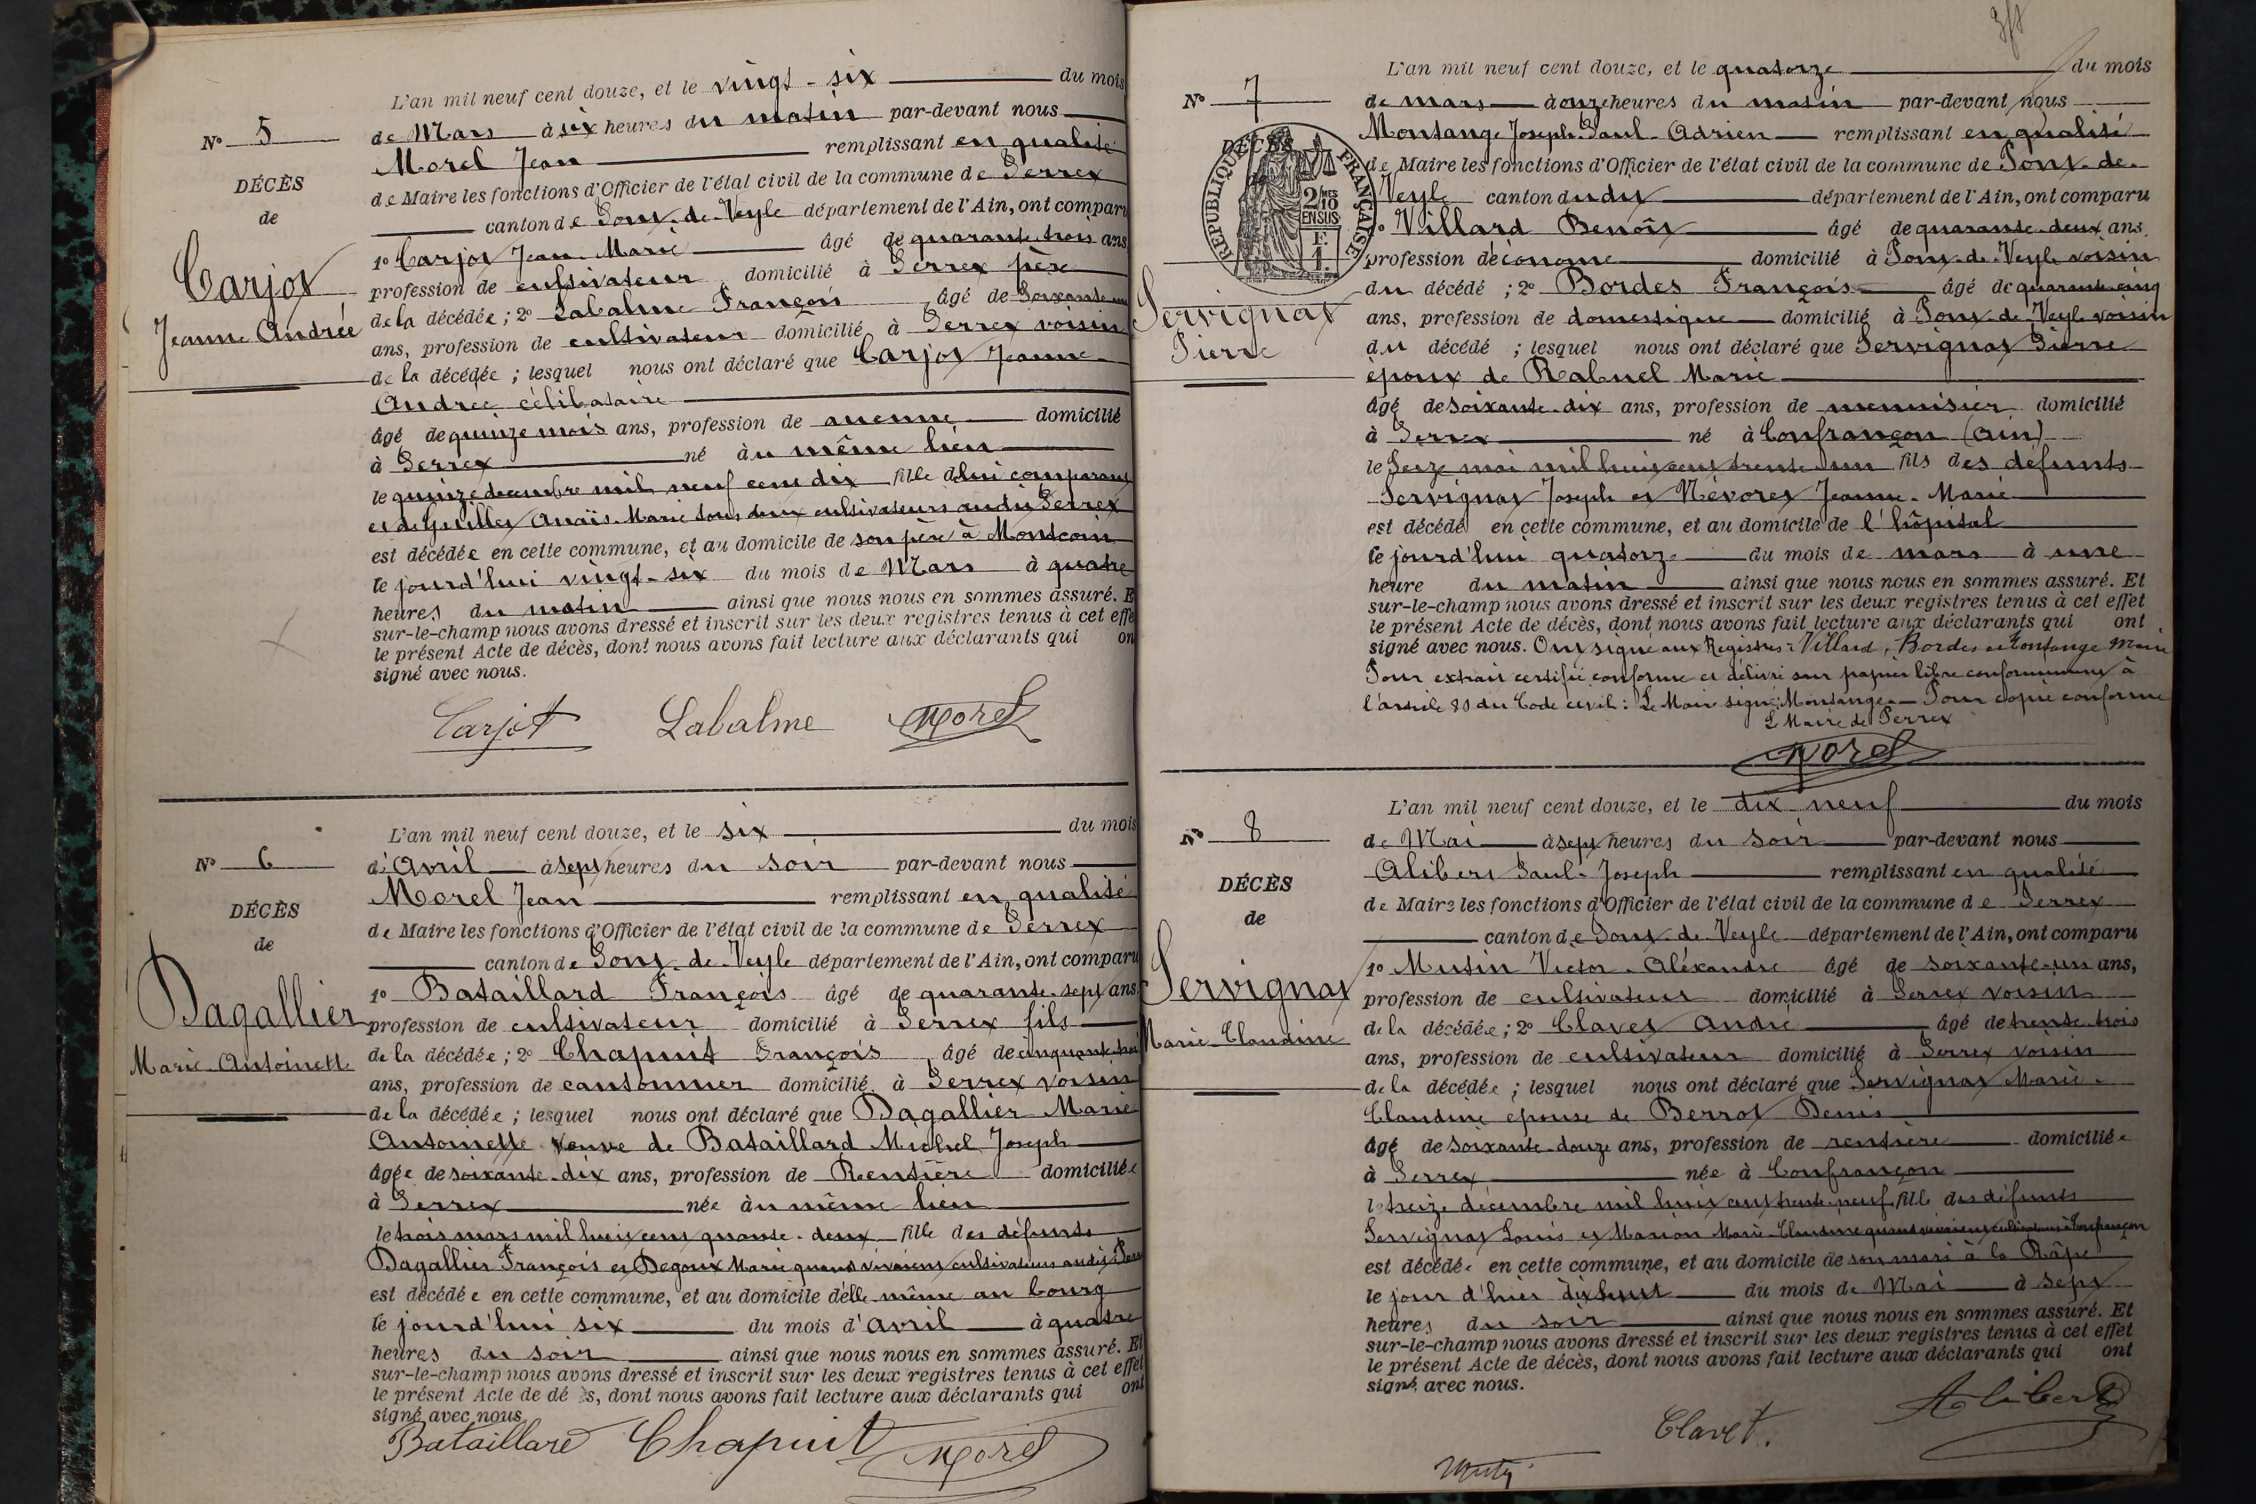 N° 5
DÉCÈS
de
Carjot
Jeanne Andrée
L'an mil neuf cent douze, et le vingt-six du mois
de Mars à six heures du matin par-devant nous
Morel Jean remplissant en qualité
de Maire les fonctions d'Officier de l'état civil de la commune de Perrex
canton de Pont-de-Veyle département de l'Ain, ont comparu
1° Carjot Jean Marie âgé de quarante trois ans
profession de cultivateur domicilié à Perrex père
de la décédée ; 2° Labalme François âgé de soixante un
ans, profession de cultivateur domicilié à Perrex voisin
de la décédée ; lesquel nous ont déclaré que Carjot Jeanne
Andrée célibataire
âgé de quinze mois ans, profession de aucune domicilié
à Perrex né à u même lieu
le quinze décembre mil neuf cent dix fille de lui comparant
et de Anaïs Marie tous deux cultivateurs audit Perrex
est décédée en cette commune, et au domicile de son père à Montcoin
le jourd'hui vingt-six du mois de Mars à quatre
heures du matin ainsi que nous nous en sommes assuré. E
sur-le-champ nous avons dressé et inscrit sur les deux registres tenus à cet effe
le présent Acte de décès, dont nous avons fait lecture aux déclarants qui on
signé avec nous.
Carjot Labalme Morel
N° 6
DÉCÈS
de
Dagallier
Marie Antoinette
L'an mil neuf cent douze, et le six du mois
d'Avril à sept heures du soir par-devant nous
Morel Jean remplissant en qualité
de Maire les fonctions d'Officier de l'état civil de la commune de Perrex
canton de Pont-de-Veyle département de l'Ain, ont comparu
1° Bataillard François âgé de quarante-sept ans
profession de cultivateur domicilié à Perrex fils
de la décédée ; 2° Chapuit François âgé de cinquante troi
ans, profession de cantonnier domicilié à Perrex voisin
de la décédée ; lesquel nous ont déclaré que Dagallier Marie
Antoinette veuve de Bataillard Michel Joseph
âgée de soixante-dix ans, profession de Rentière domiciliée
à Perrex née à u même lieu
le trois mars mil huit cent quarante-deux fille des défunts
Dagallier François et Degoux Marie quand vivaient cultivateurs audit Perr
est décédée en cette commune, et au domicile d'elle-même au bourg
le jourd'hui six du mois d'Avril à quatre
heures du soir ainsi que nous nous en sommes assuré. Et
sur-le-champ nous avons dressé et inscrit sur les deux registres tenus à cet effet
le présent Acte de dé s, dont nous avons fait lecture aux déclarants qui ont
signé avec nous
Bataillard Chapuit Morel
N° 7
DÉCÈS
RÉPUBLIQUE FRANÇAISE
2/10 MES
EN SUS
Servignat
Pierre
L'an mil neuf cent douze, et le quatorze du mois
de mars à onze heures du matin par-devant nous
Montange Joseph Paul Adrien remplissant en qualité
de Maire les fonctions d'Officier de l'état civil de la commune de Pont-de-
Veyle canton dudit département de l'Ain, ont comparu
1° Villard Benoît âgé de quarante-deux ans,
profession d'économe domicilié à Pont-de-Veyle voisin
du décédé ; 2° Bordes François âgé de quarante cinq
ans, profession de domestique domicilié à Pont-de-Veyle voisin
du décédé ; lesquel nous ont déclaré que Servignat Pierre
époux de Rabuel Marie
âgé de soixante-dix ans, profession de menuisier domicilié
à Perrex né à Confrançon (Ain)
le seize mai mil huit cent trente un fils des défunts
Servignat Joseph et Névoret Jeanne-Marie
est décédé en cette commune, et au domicile de l'hôpital
le jourd'hui quatorze du mois de mars à une
heure du matin ainsi que nous nous en sommes assuré. Et
sur-le-champ nous avons dressé et inscrit sur les deux registres tenus à cet effet
le présent Acte de décès, dont nous avons fait lecture aux déclarants qui ont
signé avec nous. Ont signé aux Registres : Villard, Bordes et Montange Maire
Pour extrait certifié conforme et délivré sur papier libre conformément à
l'article 80 du Code civil : Le Maire signé : Montange - Pour copie conforme
Le Maire de Perrex
Morel
N° 8
DÉCÈS
de
Servignat
Marie-Claudine
L'an mil neuf cent douze, et le dix neuf du mois
de Mai à sept heures du soir par-devant nous
Alibert Paul-Joseph remplissant en qualité
de Maire les fonctions d'Officier de l'état civil de la commune de Perrex
canton de Pont-de-Veyle département de l'Ain, ont comparu
1° Mutin Victor-Aléxandre âgé de soixante-un ans,
profession de cultivateur domicilié à Perrex voisin
de la décédée ; 2° Clavet André âgé de trente-trois
ans, profession de cultivateur domicilié à Perrex voisin
de la décédée ; lesquel nous ont déclaré que Servignat Marie-
Claudine épouse de Berrot Denis
âgé de soixante-douze ans, profession de rentière domiciliée
à Perrex née à Confrançon
le treize décembre mil huit cent trente-neuf fille des défunts
Servignat Louis et Marion Marie-Claudine quand vivaient cultivateurs à Confrançon
est décédée en cette commune, et au domicile de son mari à la Râpe
le jour d'hier dix huit du mois de Mai à sept
heures du soir ainsi que nous nous en sommes assuré. Et
sur-le-champ nous avons dressé et inscrit sur les deux registres tenus à cet effet
le présent Acte de décès, dont nous avons fait lecture aux déclarants qui ont
signé avec nous.
Clavet. Alibert